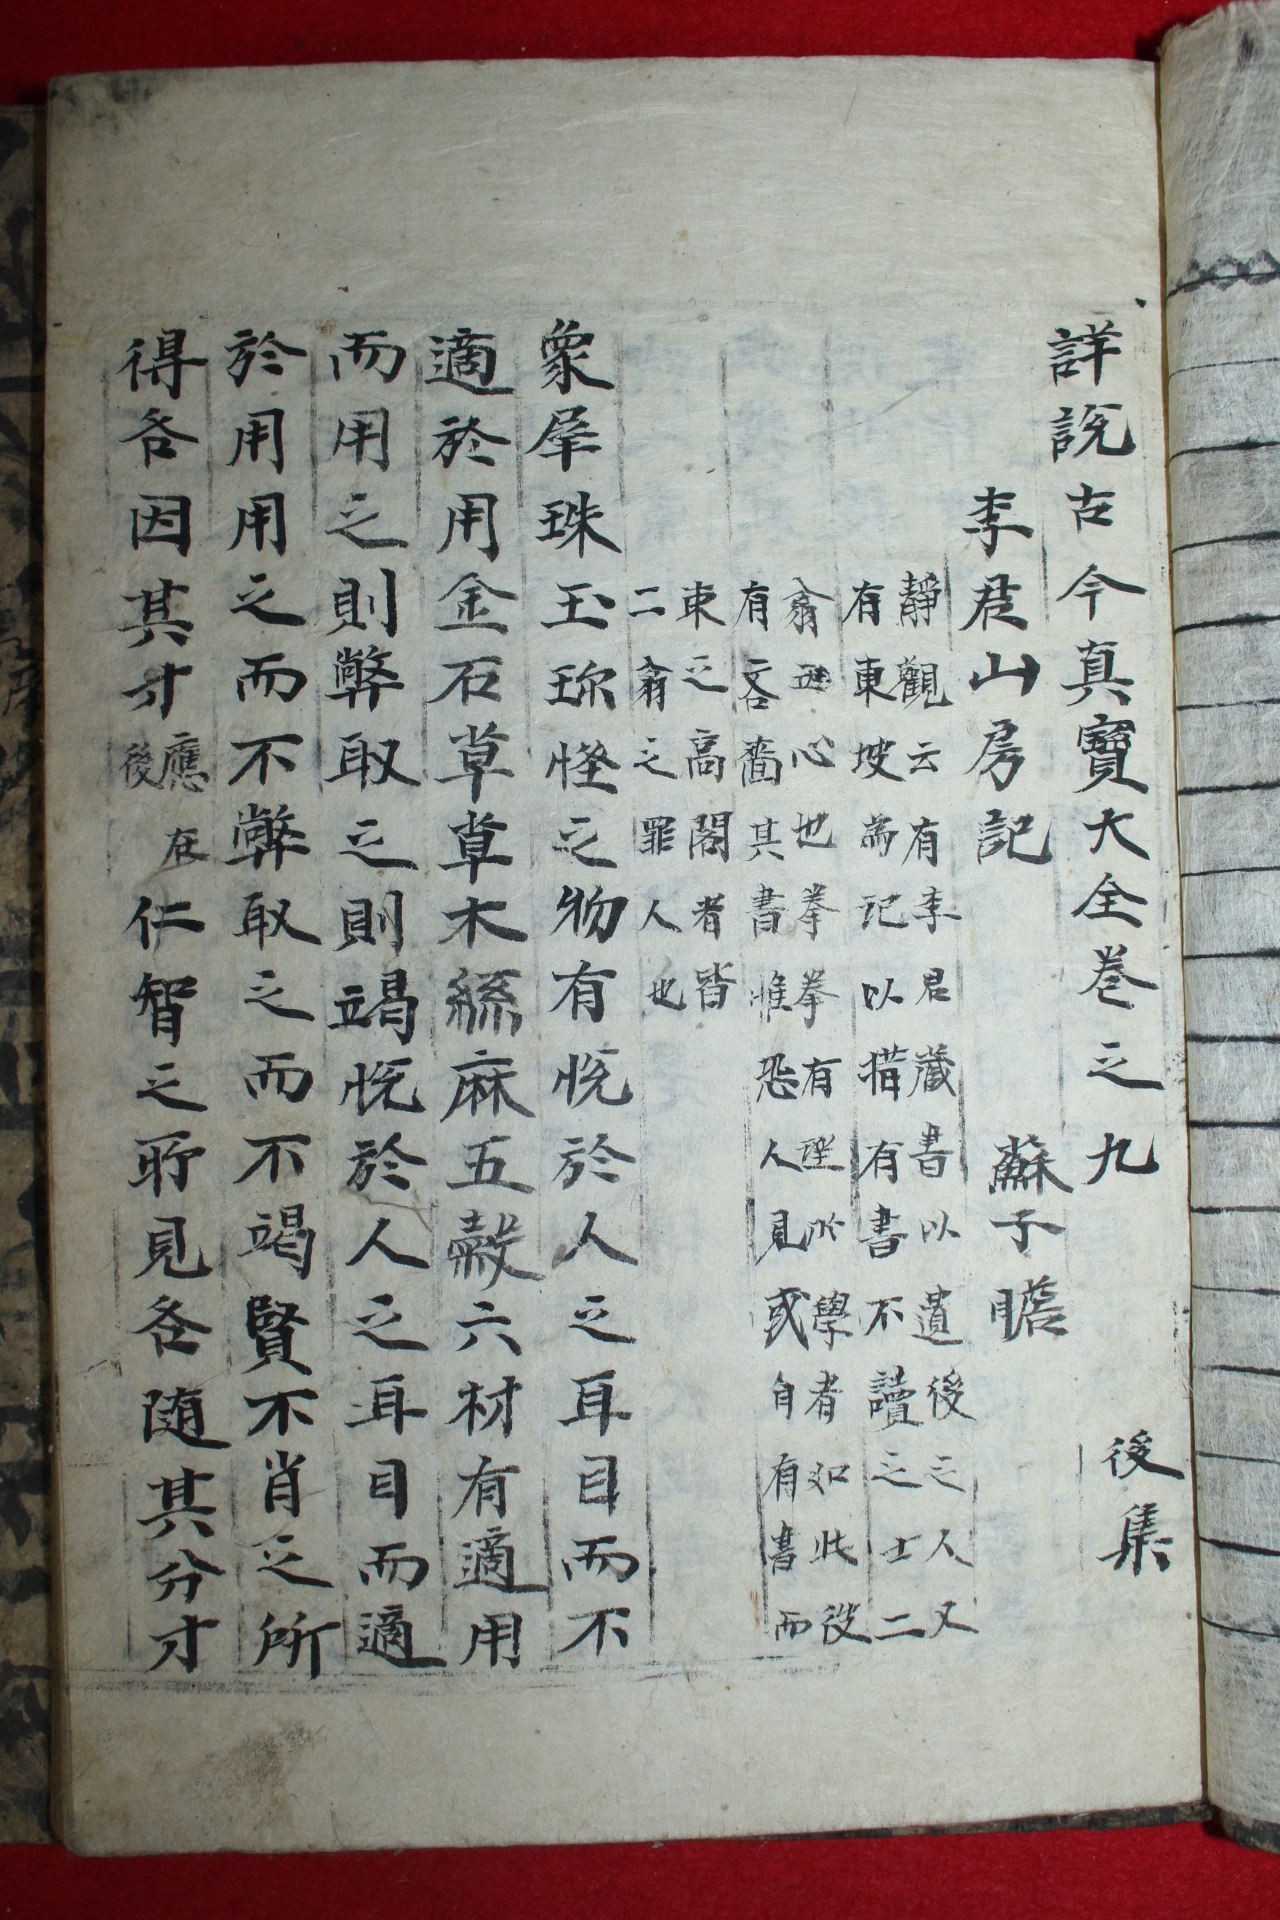 詳說古今真寶大全卷之九 後集
李君山房記 蘇子瞻
靜觀云有李君蔵書以遺後之人又
有東坡為記以猎有書不讀之士二
翁心也拳拳有望於學者如此彼
有吝嗇其書惟恐人見或自有書而
束之高閣者皆
二翁之罪人也
象犀珠玉珎怪之物有悅於人之耳目而不
適於用金石草草木絲麻五穀六材有適用
而用之則弊取之則竭悅於人之耳目而適
於用用之而不弊取之而不竭賢不肖之所
得各因其才應在後仁智之所見各随其分才